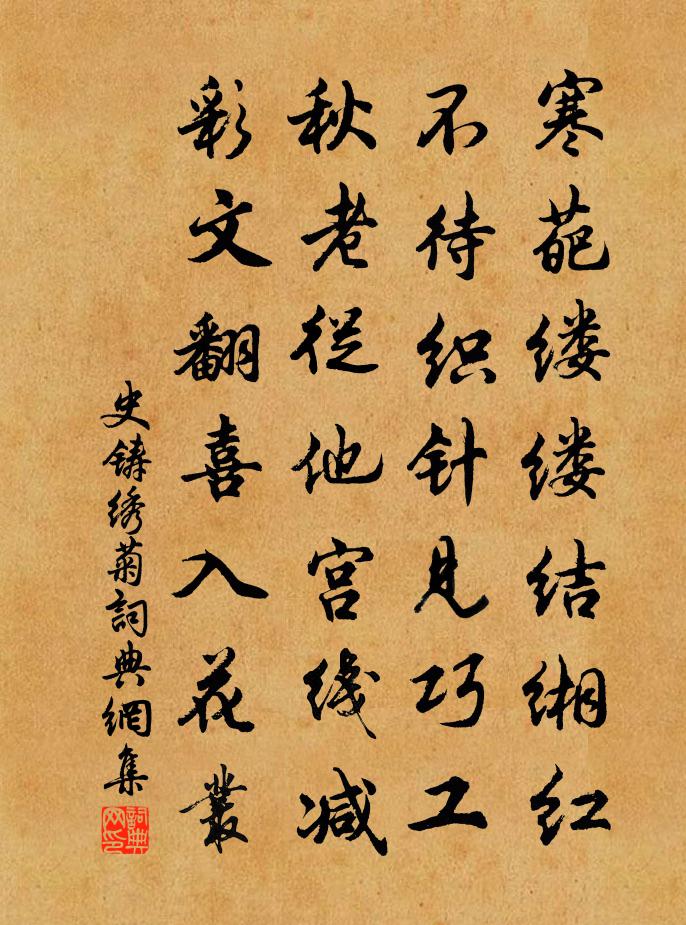 寒葩缕缕结缃红
不待织针见巧工
秋老從他宫线减
彩文翻喜入花叢
史铸绣菊詞典網集
詞典网印